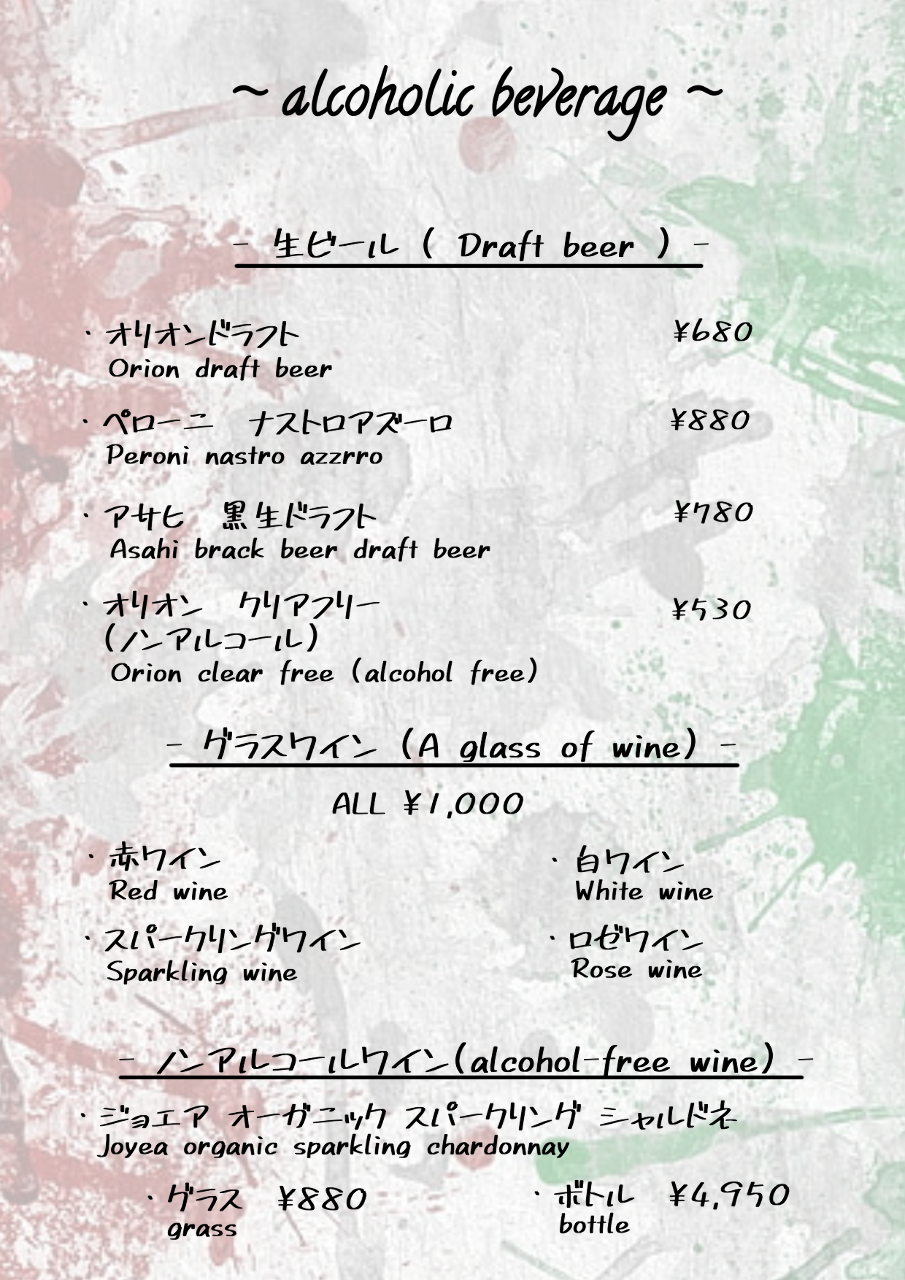 ~ alcoholic beverage ~
- 生ビール ( Draft beer ) -
・オリオンドラフト ¥680
Orion draft beer
・ペローニ ナストロアズーロ ¥880
Peroni nastro azzrro
・アサヒ 黒生ドラフト ¥780
Asahi brack beer draft beer
・オリオン クリアフリー ¥530
(ノンアルコール)
Orion clear free (alcohol free)
- グラスワイン (A glass of wine) -
ALL ¥1,000
・赤ワイン ・白ワイン
Red wine White wine
・スパークリングワイン ・ロゼワイン
Sparkling wine Rose wine
- ノンアルコールワイン(alcohol-free wine) -
・ジョエア オーガニック スパークリング シャルドネ
Joyea organic sparkling chardonnay
・グラス ¥880 ・ボトル ¥4,950
grass bottle